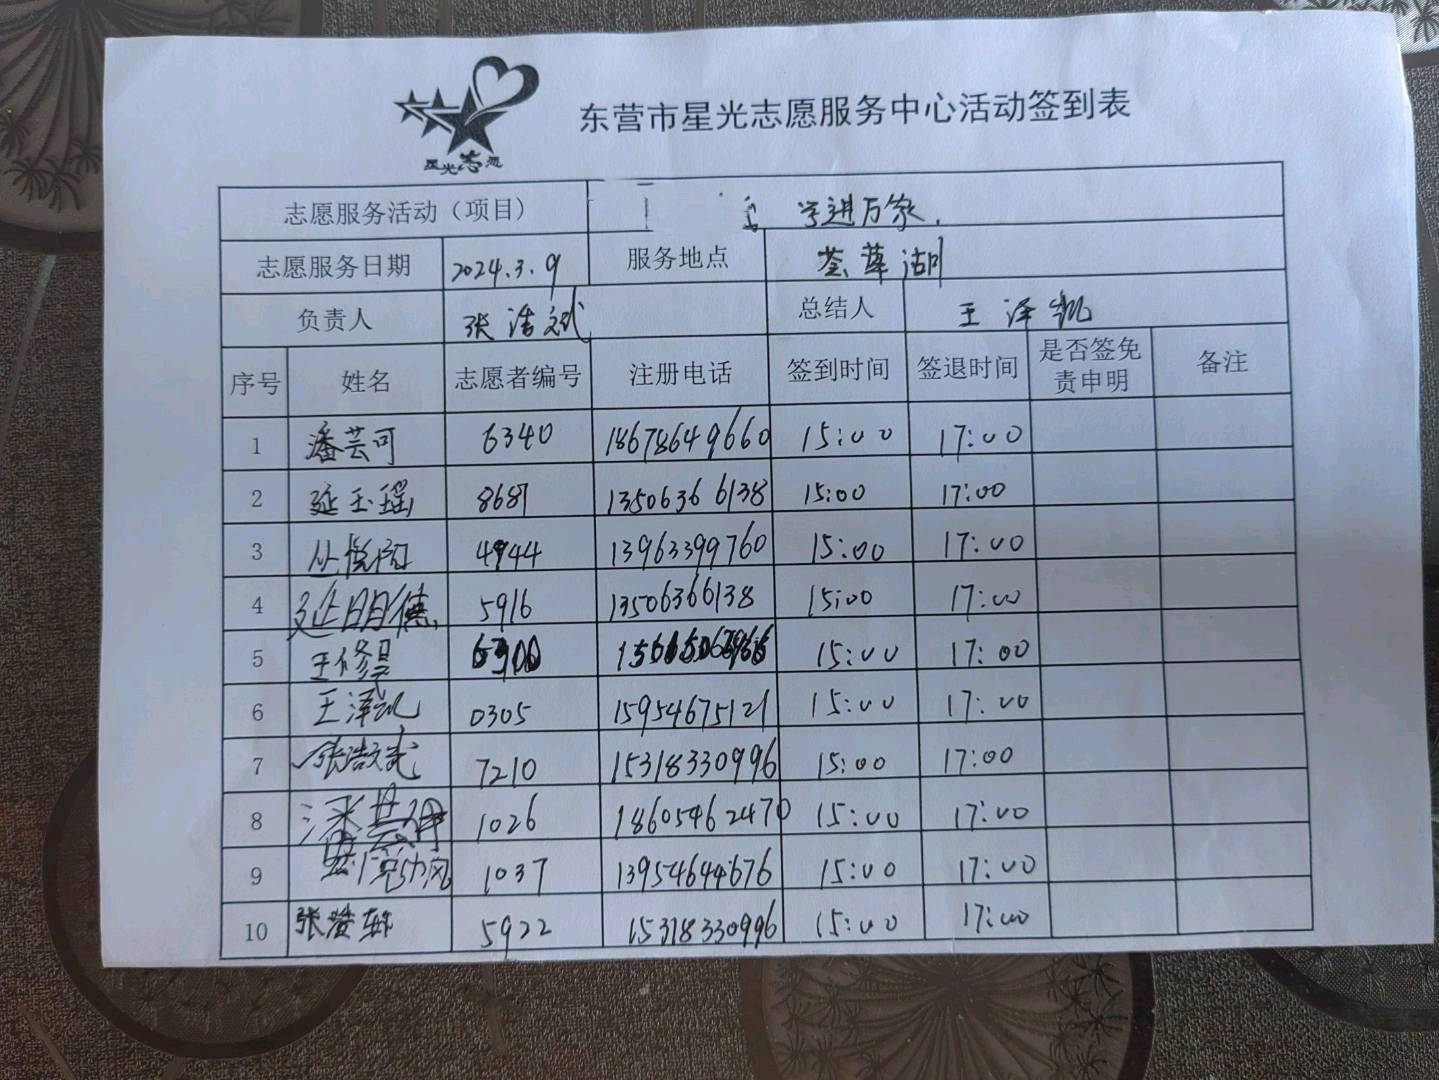 星光志愿
东营市星光志愿服务中心活动签到表
志愿服务活动（项目） 学进万家.
志愿服务日期 2024.3.9 服务地点 荟萃湖
负责人 张浩文斌 总结人 王泽凯
序号 姓名 志愿者编号 注册电话 签到时间 签退时间 是否签免责申明 备注
1 潘芸可 6340 18678649660 15:00 17:00
2 延玉瑶 8687 13506366138 15:00 17:00
3 丛悦 4944 13963399760 15:00 17:00
4 延明德 5916 13506366138 15:00 17:00
5 王修昊 15:00 17:00
6 王泽凯 0305 15954675121 15:00 17:00
7 张浩文斌 7210 15318330996 15:00 17:00
8 1026 18605462470 15:00 17:00
9 1037 13954644676 15:00 17:00
10 张赞轩 5922 15318330996 15:00 17:00